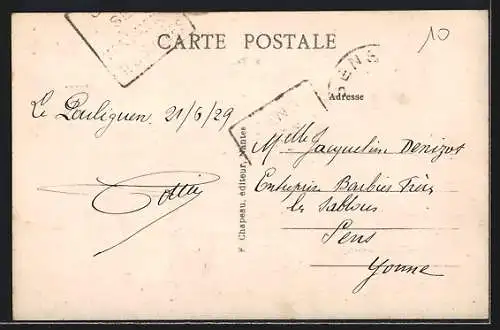 CARTE POSTALE
10
SENS
Adresse
Le Pouliguen. 21/6/29
Mlle Jacquelin Denizot
Entrepris Barbier Frères
les Sablons
Sens
Yonne
F. Chapeau, éditeur, Nantes